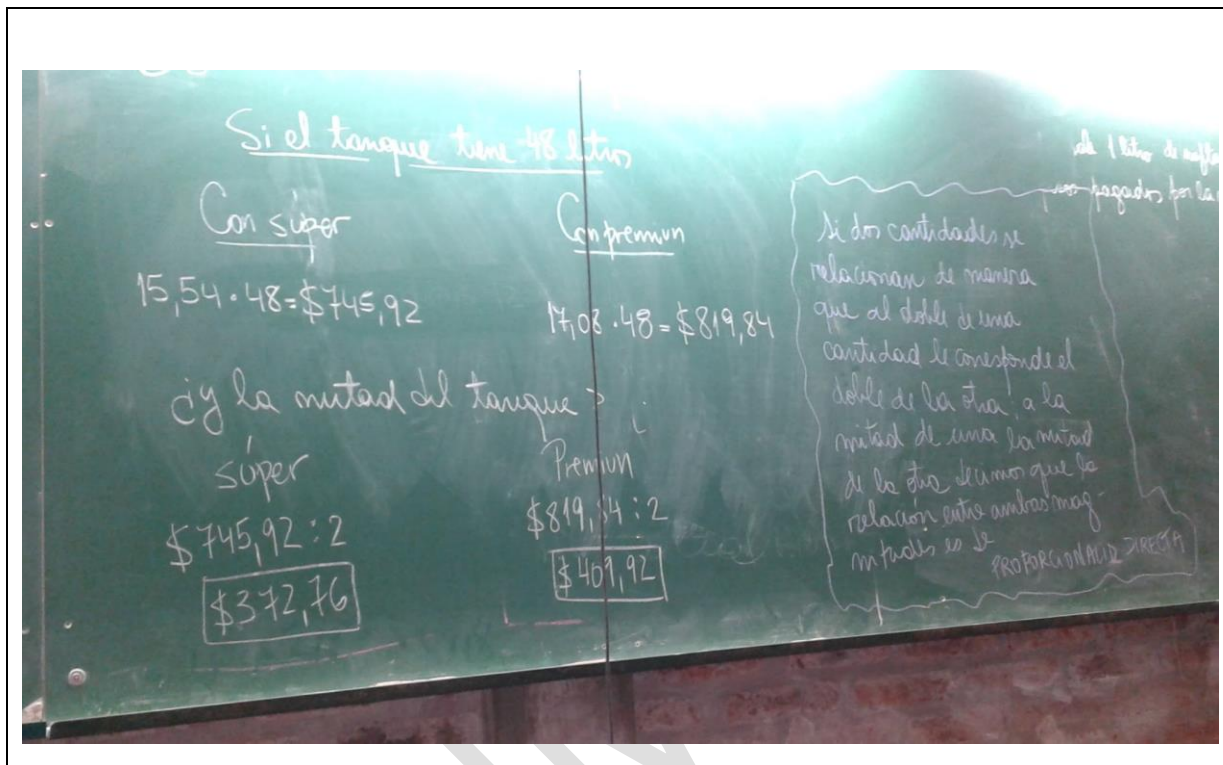 Si el tanque tiene 48 litros
Con súper
15,54 · 48 = $745,92
Con premiun
17,08 · 48 = $819,84
¿y la mitad del tanque?
súper
$745,92 : 2
$372,76
Premiun
$819,84 : 2
$409,92
de 1 litro de
pagados por la
Si dos cantidades se
relacionan de manera
que al doble de una
cantidad le corresponde el
doble de la otra, a la
mitad de una la mitad
de la otra decimos que la
relacion entre ambas mag-
nitudes es de
PROPORCIONALID DIRECTA